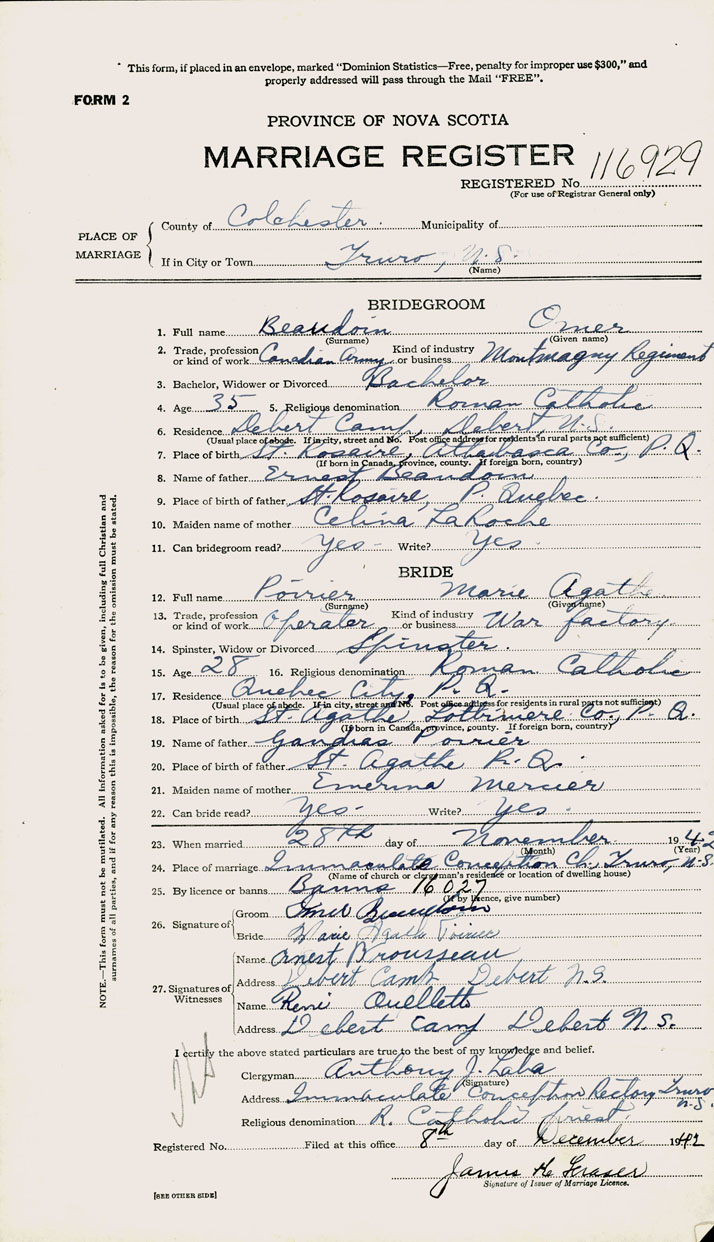 This form, if placed in an envelope, marked "Dominion Statistics—Free, penalty for improper use $300," and
properly addressed will pass through the Mail "FREE".
FORM 2
PROVINCE OF NOVA SCOTIA
MARRIAGE REGISTER 116929
REGISTERED No.
(For use of Registrar General only)
PLACE OF MARRIAGE
County of Colchester. Municipality of
If in City or Town Truro, N.S.
(Name)
BRIDEGROOM
1. Full name Beaudoin Omer
(Surname) (Given name)
2. Trade, profession or kind of work Canadian Army Kind of industry or business Montmagny Regiment
3. Bachelor, Widower or Divorced Bachelor
4. Age 35 5. Religious denomination Roman Catholic
6. Residence Debert Camp, Debert N.S.
(Usual place of abode. If in city, street and No. Post office address for residents in rural parts not sufficient)
7. Place of birth St. Rosaire, Athabasca Co., P.Q.
(If born in Canada, province, county. If foreign born, country)
8. Name of father Ernest Beaudoin
9. Place of birth of father St. Rosaire, P. Quebec.
10. Maiden name of mother Celina LaRoche
11. Can bridegroom read? Yes- Write? Yes.
BRIDE
12. Full name Poirier Marie Agathe
(Surname) (Given name)
13. Trade, profession or kind of work Operater Kind of industry or business War factory.
14. Spinster, Widow or Divorced Spinster.
15. Age 28 16. Religious denomination Roman Catholic
17. Residence Quebec City, P.Q.
(Usual place of abode. If in city, street and No. Post office address for residents in rural parts not sufficient)
18. Place of birth St. Agathe, Lotbiniere Co., P.Q.
(If born in Canada, province, county. If foreign born, country)
19. Name of father Gaudias Poirier
20. Place of birth of father St. Agathe P.Q.
21. Maiden name of mother Emerina Mercier
22. Can bride read? Yes- Write? Yes.
23. When married 28th day of November 1942
(Month) (Year)
24. Place of marriage Immaculate Conception Ch., Truro, N.S.
(Name of church or clergyman's residence or location of dwelling house)
25. By licence or banns Banns 16027
(If by licence, give number)
26. Signature of
Groom Beaudoin
Bride Marie Agathe Poirier
27. Signatures of Witnesses
Name Ernest Brousseau
Address Debert Camp Debert N.S.
Name René Ouellett
Address Debert Camp Debert N.S.
I certify the above stated particulars are true to the best of my knowledge and belief.
Clergyman Anthony J. Laba
(Signature)
Address Immaculate Conception Rectory Truro N.S.
Religious denomination R. Catholic Priest
Registered No. Filed at this office 8th day of December 1942
James H Fraser
Signature of Issuer of Marriage Licence.
[SEE OTHER SIDE]
NOTE.—This form must not be mutilated. All information asked for is to be given, including full Christian and
surnames of all parties, and if for any reason this is impossible, the reason for the omission must be stated.